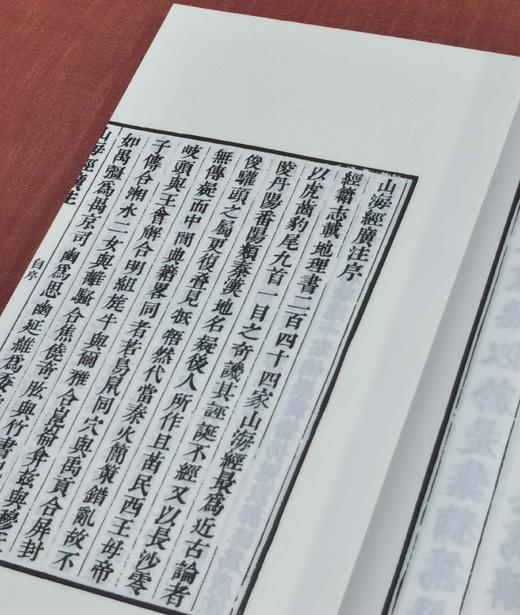 山海經廣注序
經籍志載地理書二百四十四家山海經最爲近古論者
以虎齒豹尾九首一目之奇譏其誣誕不經又以長沙零
陵丹陽番陽類秦漢地名疑後人所作且苗民西王母帝
俊驩頭之屬更復叠見牴牾然代當秦火簡策錯亂故不
無傳疑而中間典籍畧同者若鳥鼠同穴與禹貢合屏封
岐頭與王會解合明組旄牛與爾雅合崑崙會茲與穆天
子傳合湘水二女與離騷合焦僥奇肱與竹書
如禺彊爲禺京司幽爲思幽延維爲委
山海經廣注
自序